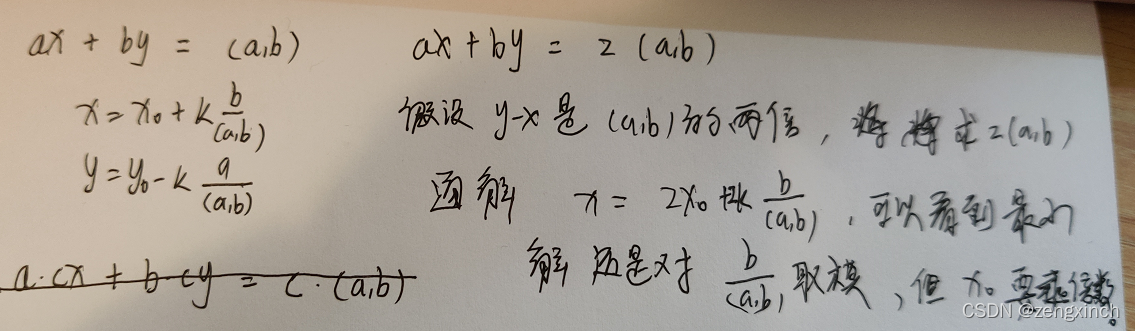 ax + by = (a,b)
x = x₀ + k b/(a,b)
y = y₀ - k a/(a,b)
a·cx + b·cy = c·(a,b)
ax + by = 2 (a,b)
假设 y-x 是 (a,b) 的两倍, 求 2(a,b)
通解 x = 2x₀ + k b/(a,b), 可以看到最小
解 还是对 b/(a,b) 取模, 但 x₀ 要乘倍数。
CSDN @zengxinch